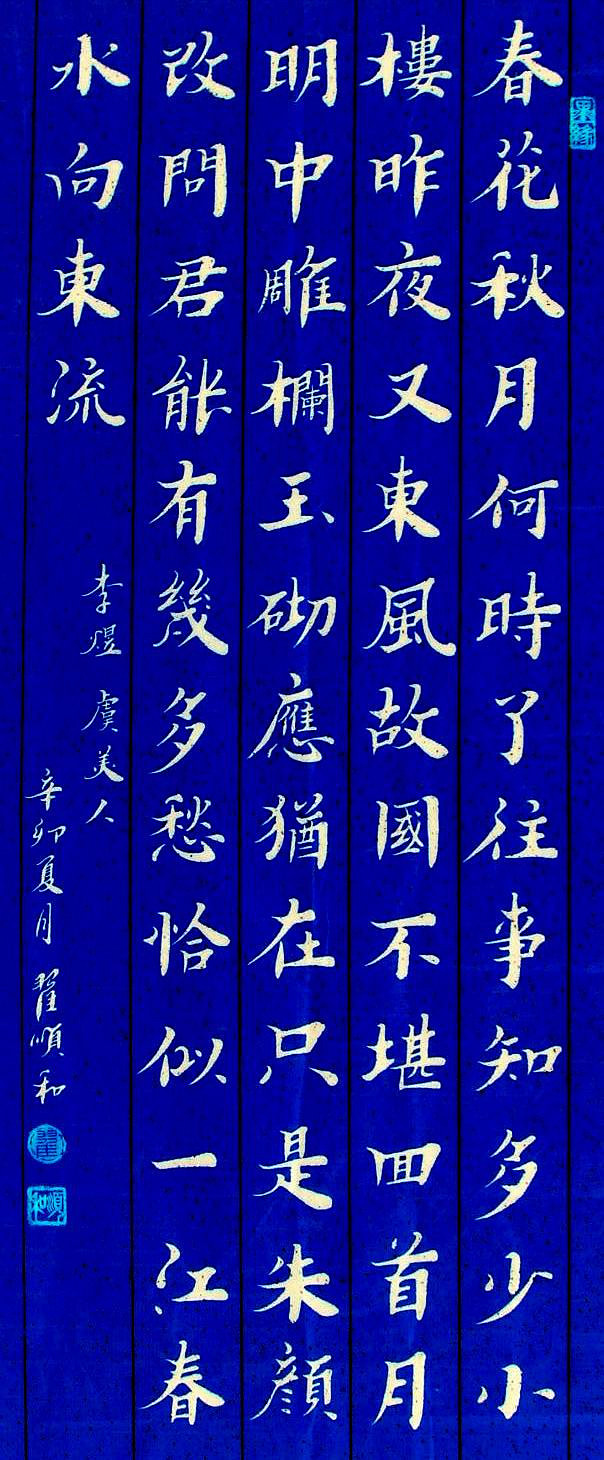 春花秋月何時了往事知多少小
樓昨夜又東風故國不堪回首月
明中雕欄玉砌應猶在只是朱顔
改問君能有幾多愁恰似一江春
水向東流
李煜 虞美人
辛卯夏月 翟順和